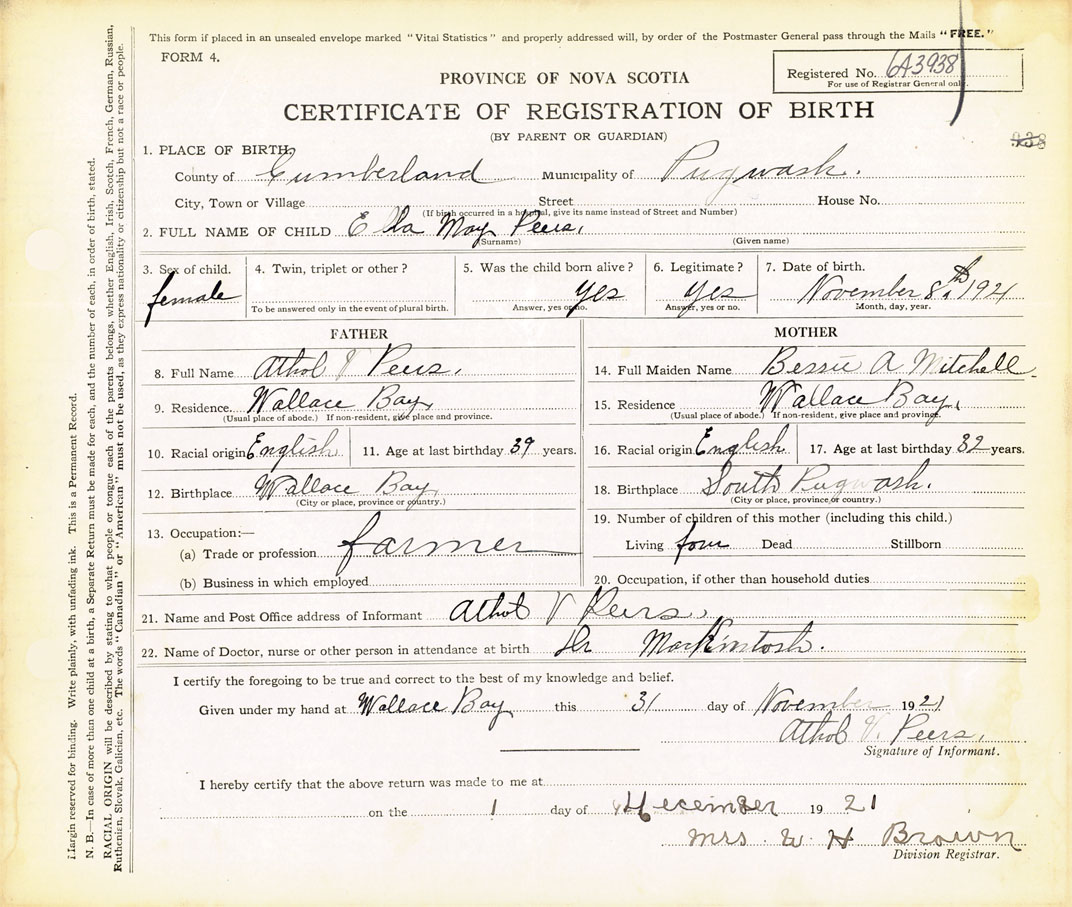 This form if placed in an unsealed envelope marked "Vital Statistics" and properly addressed will, by order of the Postmaster General pass through the Mails "FREE."
FORM 4.
Registered No. 6A3938
For use of Registrar General only.
PROVINCE OF NOVA SCOTIA
CERTIFICATE OF REGISTRATION OF BIRTH
(BY PARENT OR GUARDIAN)
938
1. PLACE OF BIRTH
County of Cumberland Municipality of Pugwash.
City, Town or Village Street House No.
(If birth occurred in a hospital, give its name instead of Street and Number)
2. FULL NAME OF CHILD Ella May Peers,
(Surname) (Given name)
3. Sex of child. 4. Twin, triplet or other? 5. Was the child born alive? 6. Legitimate? 7. Date of birth.
female yes yes November 8th 1921
To be answered only in the event of plural birth. Answer, yes or no. Answer, yes or no. Month, day, year.
FATHER
8. Full Name Athol V Peers.
9. Residence. Wallace Bay,
(Usual place of abode.) If non-resident, give place and province.
10. Racial origin English 11. Age at last birthday 39 years.
12. Birthplace Wallace Bay,
(City or place, province or country.)
13. Occupation:—
(a) Trade or profession farmer
(b) Business in which employed
MOTHER
14. Full Maiden Name Bessie A Mitchell.
15. Residence Wallace Bay,
(Usual place of abode.) If non-resident, give place and province.
16. Racial origin English 17. Age at last birthday 32 years.
18. Birthplace South Pugwash.
(City or place, province or country.)
19. Number of children of this mother (including this child.)
Living four Dead Stillborn
20. Occupation, if other than household duties
21. Name and Post Office address of Informant Athol V Peers,
22. Name of Doctor, nurse or other person in attendance at birth Dr MacKintosh.
I certify the foregoing to be true and correct to the best of my knowledge and belief.
Given under my hand at Wallace Bay this 31 day of November 1921
Athol V. Peers,
Signature of Informant.
I hereby certify that the above return was made to me at
on the 1 day of December 1921
Mrs. W H Brown
Division Registrar.
Margin reserved for binding. Write plainly, with unfading ink. This is a Permanent Record.
N. B.—In case of more than one child at a birth, a Separate Return must be made for each, and the number of each, in order of birth, stated.
RACIAL ORIGIN will be described by stating to what people or tongue each of the parents belongs, whether English, Irish, Scotch, French, German, Russian,
Ruthenian, Slovak, Galician, etc. The words "Canadian" or "American" must not be used, as they express nationality or citizenship but not a race or people.